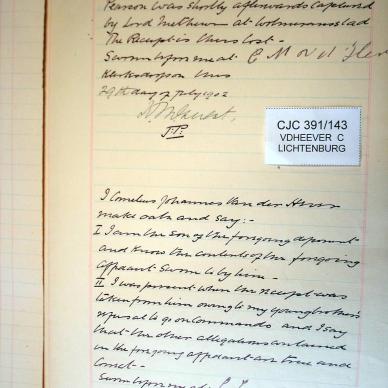 Person was shortly afterwards captured
by Lord Methuen at Wolmaransstad
The Receipt is thus lost -
Sworn before me at
Klerksdorp on this
29th day of July 1902
J.P.
CJC 391/143
VDHEEVER C
LICHTENBURG
I Cornelius Johannes Van der Heever
make oath and say :-
I I am the son of the foregoing deponent
and know the contents of the foregoing
affidavit sworn to by him -
II I was present when the receipt was
taken from him owing to my young brother's
refusal to go on Commando and I say
that the other allegations contained
in the foregoing affidavit are true and
Correct -
Sworn before me at